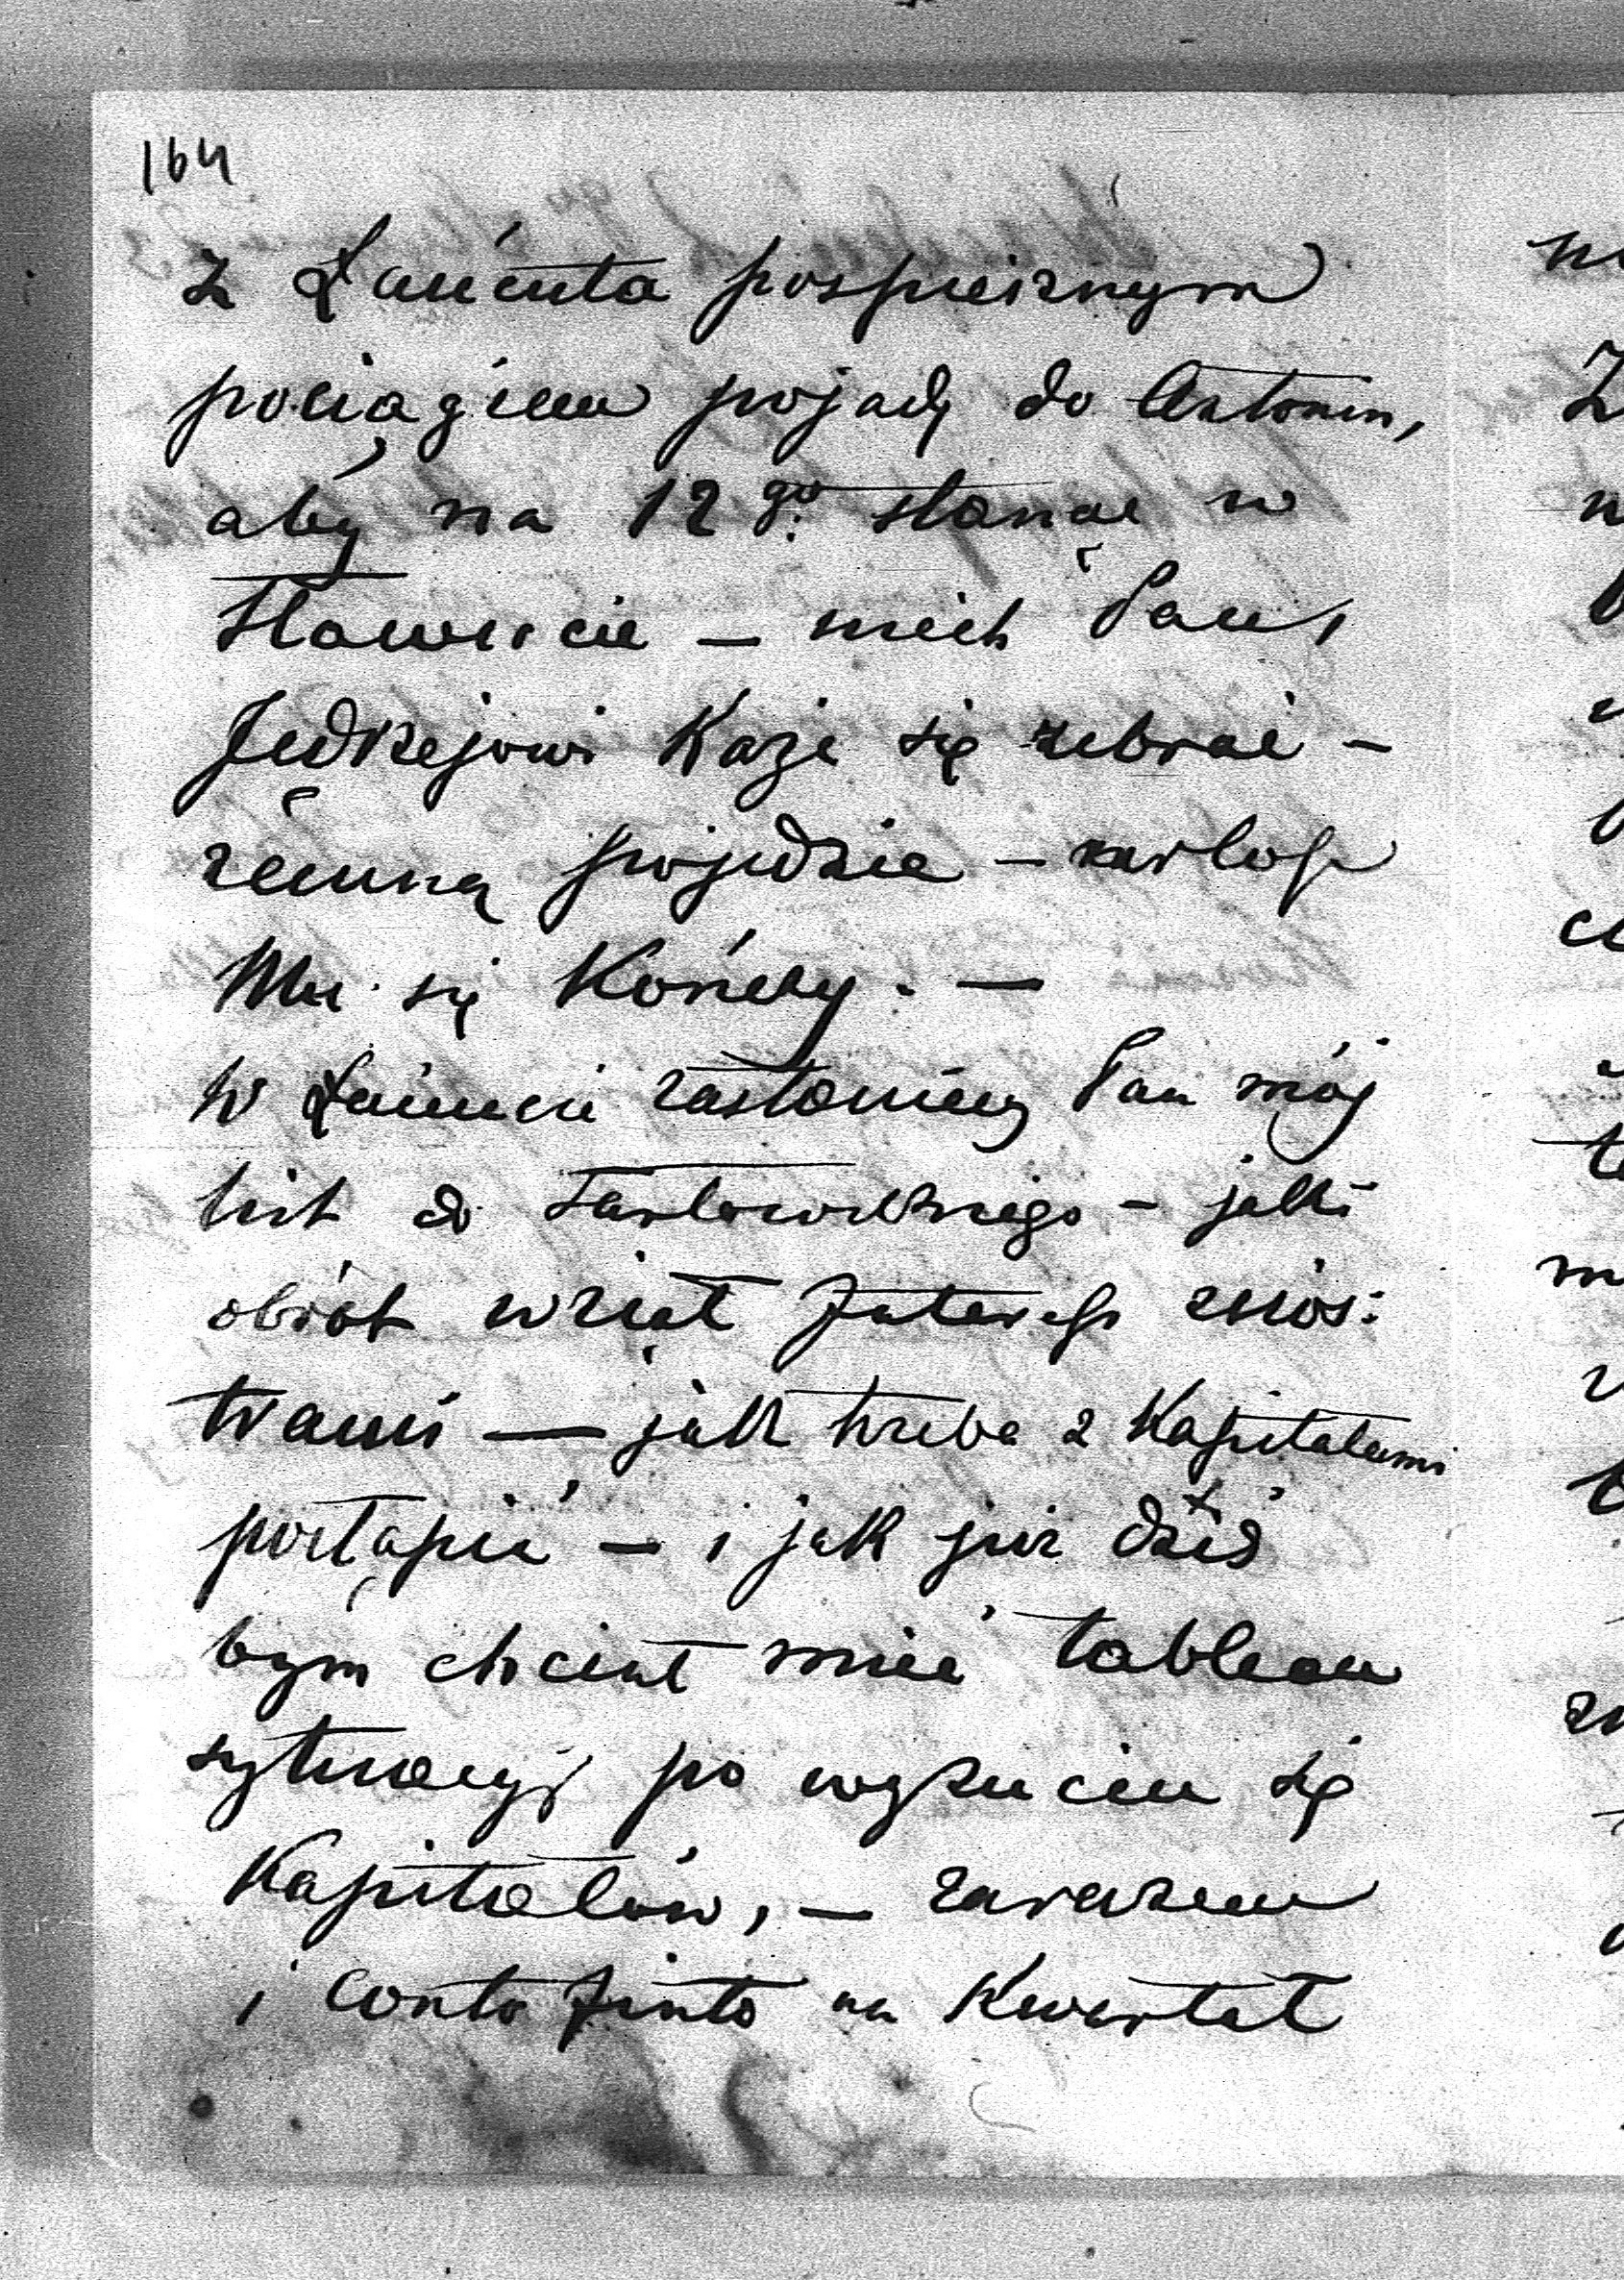 164
z Łańcuta pospiesznym
pociągiem pojadę do Antonin,
aby na 12go stanąć w
Sławucie – niech Pan
Jędrzejowi każe się zebrać –
zemną pojedzie – urlop
Mu się kończy. –
W Łańcucie zastanie Pan mój
list do – jaki
obrót wziął Interes z sios:
trami — jak trzeba z Kapitałami
postąpić – i jak już dziś
bym chciał mieć tableau
sytuacyi po wyzuciu się
Kapitałów, – zarazem
i conto finto na Kwartał